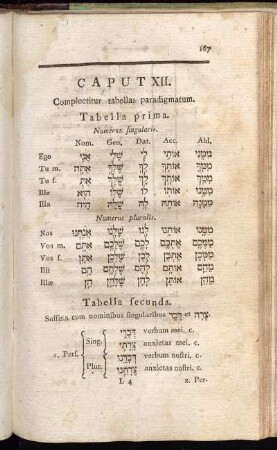 167
CAPUT XII.
Complectitur tabellas paradigmatum.
Tabella prima.
Numerus singularis.
Nom. Gen. Dat. Acc. Abl.
Ego אֲנִי שֶׁלִּי לִי אוֹתִי מִמֶּנִּי
Tu m. אַתָּה שֶׁלְּךָ לְךָ אוֹתְךָ מִמְּךָ
Tu f. אַתְּ שֶׁלָּךְ לָךְ אוֹתָךְ מִמֵּךְ
Ille הוּא שֶׁלּוֹ לוֹ אוֹתוֹ מִמֶּנּוּ
Illa הִיא שֶׁלָּהּ לָהּ אוֹתָהּ מִמֶּנָּה
Numerus pluralis.
Nos אֲנַחְנוּ שֶׁלָּנוּ לָנוּ אוֹתָנוּ מִמֶּנּוּ
Vos m. אַתֶּם שֶׁלָּכֶם לָכֶם אֶתְכֶם מִמְּכֶם
Vos f. אַתֶּן שֶׁלָּכֶן לָכֶן אֶתְכֶן מִמְּכֶן
Illi הֵם שֶׁלָּהֶם לָהֶם אוֹתָם מֵהֶם
Illæ הֵן שֶׁלָּהֶן לָהֶן אוֹתָן מֵהֶן
Tabella secunda.
Suffixa cum nominibus singularibus דָּבָר et צָרָה.
דְּבָרִי verbum mei, c.
Sing. צָרָתִי anxietas mei, c.
1. Pers.
דְּבָרֵנוּ verbum nostri, c.
Plur. צָרָתֵנוּ anxietas nostri, c.
L 4 2. Per-